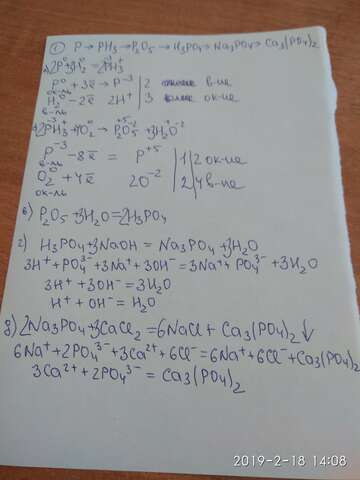 ① P → PH₃ → P₂O₅ → H₃PO₄ → Na₃PO₄ → Ca₃(PO₄)₂
2P⁰+3H₂⁰=2P⁻³H₃⁺
P⁰ + 3ē → P⁻³ | 2 в-ие
ок-ль
H₂⁰ - 2ē 2H⁺ | 3 ок-ие
в-ль
2P⁻³H₃⁺ + 4O₂⁰ → P₂⁺⁵O₅⁻² + 3H₂⁺O⁻²
P⁻³ - 8ē = P⁺⁵ | 1 | 2 ок-ие
в-ль
O₂⁰ + 4ē 2O⁻² | 2 | 4 в-ие
ок-ль
в) P₂O₅ + 3H₂O = 2H₃PO₄
г) H₃PO₄ + 3NaOH = Na₃PO₄ + 3H₂O
3H⁺ + PO₄³⁻ + 3Na⁺ + 3OH⁻ = 3Na⁺ + PO₄³⁻ + 3H₂O
3H⁺ + 3OH⁻ = 3H₂O
H⁺ + OH⁻ = H₂O
д) 2Na₃PO₄ + 3CaCl₂ = 6NaCl + Ca₃(PO₄)₂ ↓
6Na⁺ + 2PO₄³⁻ + 3Ca²⁺ + 6Cl⁻ = 6Na⁺ + 6Cl⁻ + Ca₃(PO₄)₂
3Ca²⁺ + 2PO₄³⁻ = Ca₃(PO₄)₂
2019-2-18 14:08